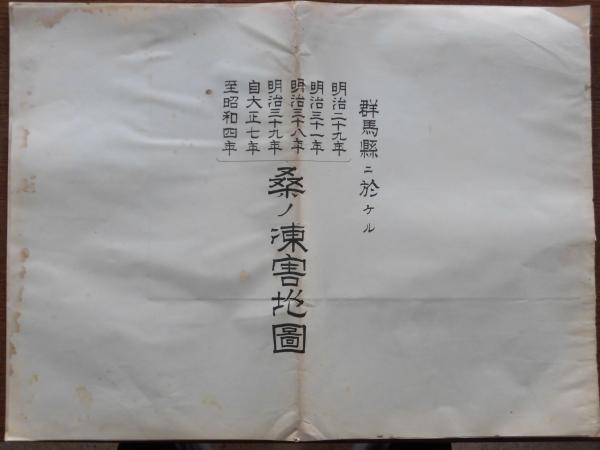 群馬縣ニ於ケル
明治二十九年
明治三十一年
明治三十八年
明治三十九年
自大正七年
至昭和四年
桑ノ凍害地圖